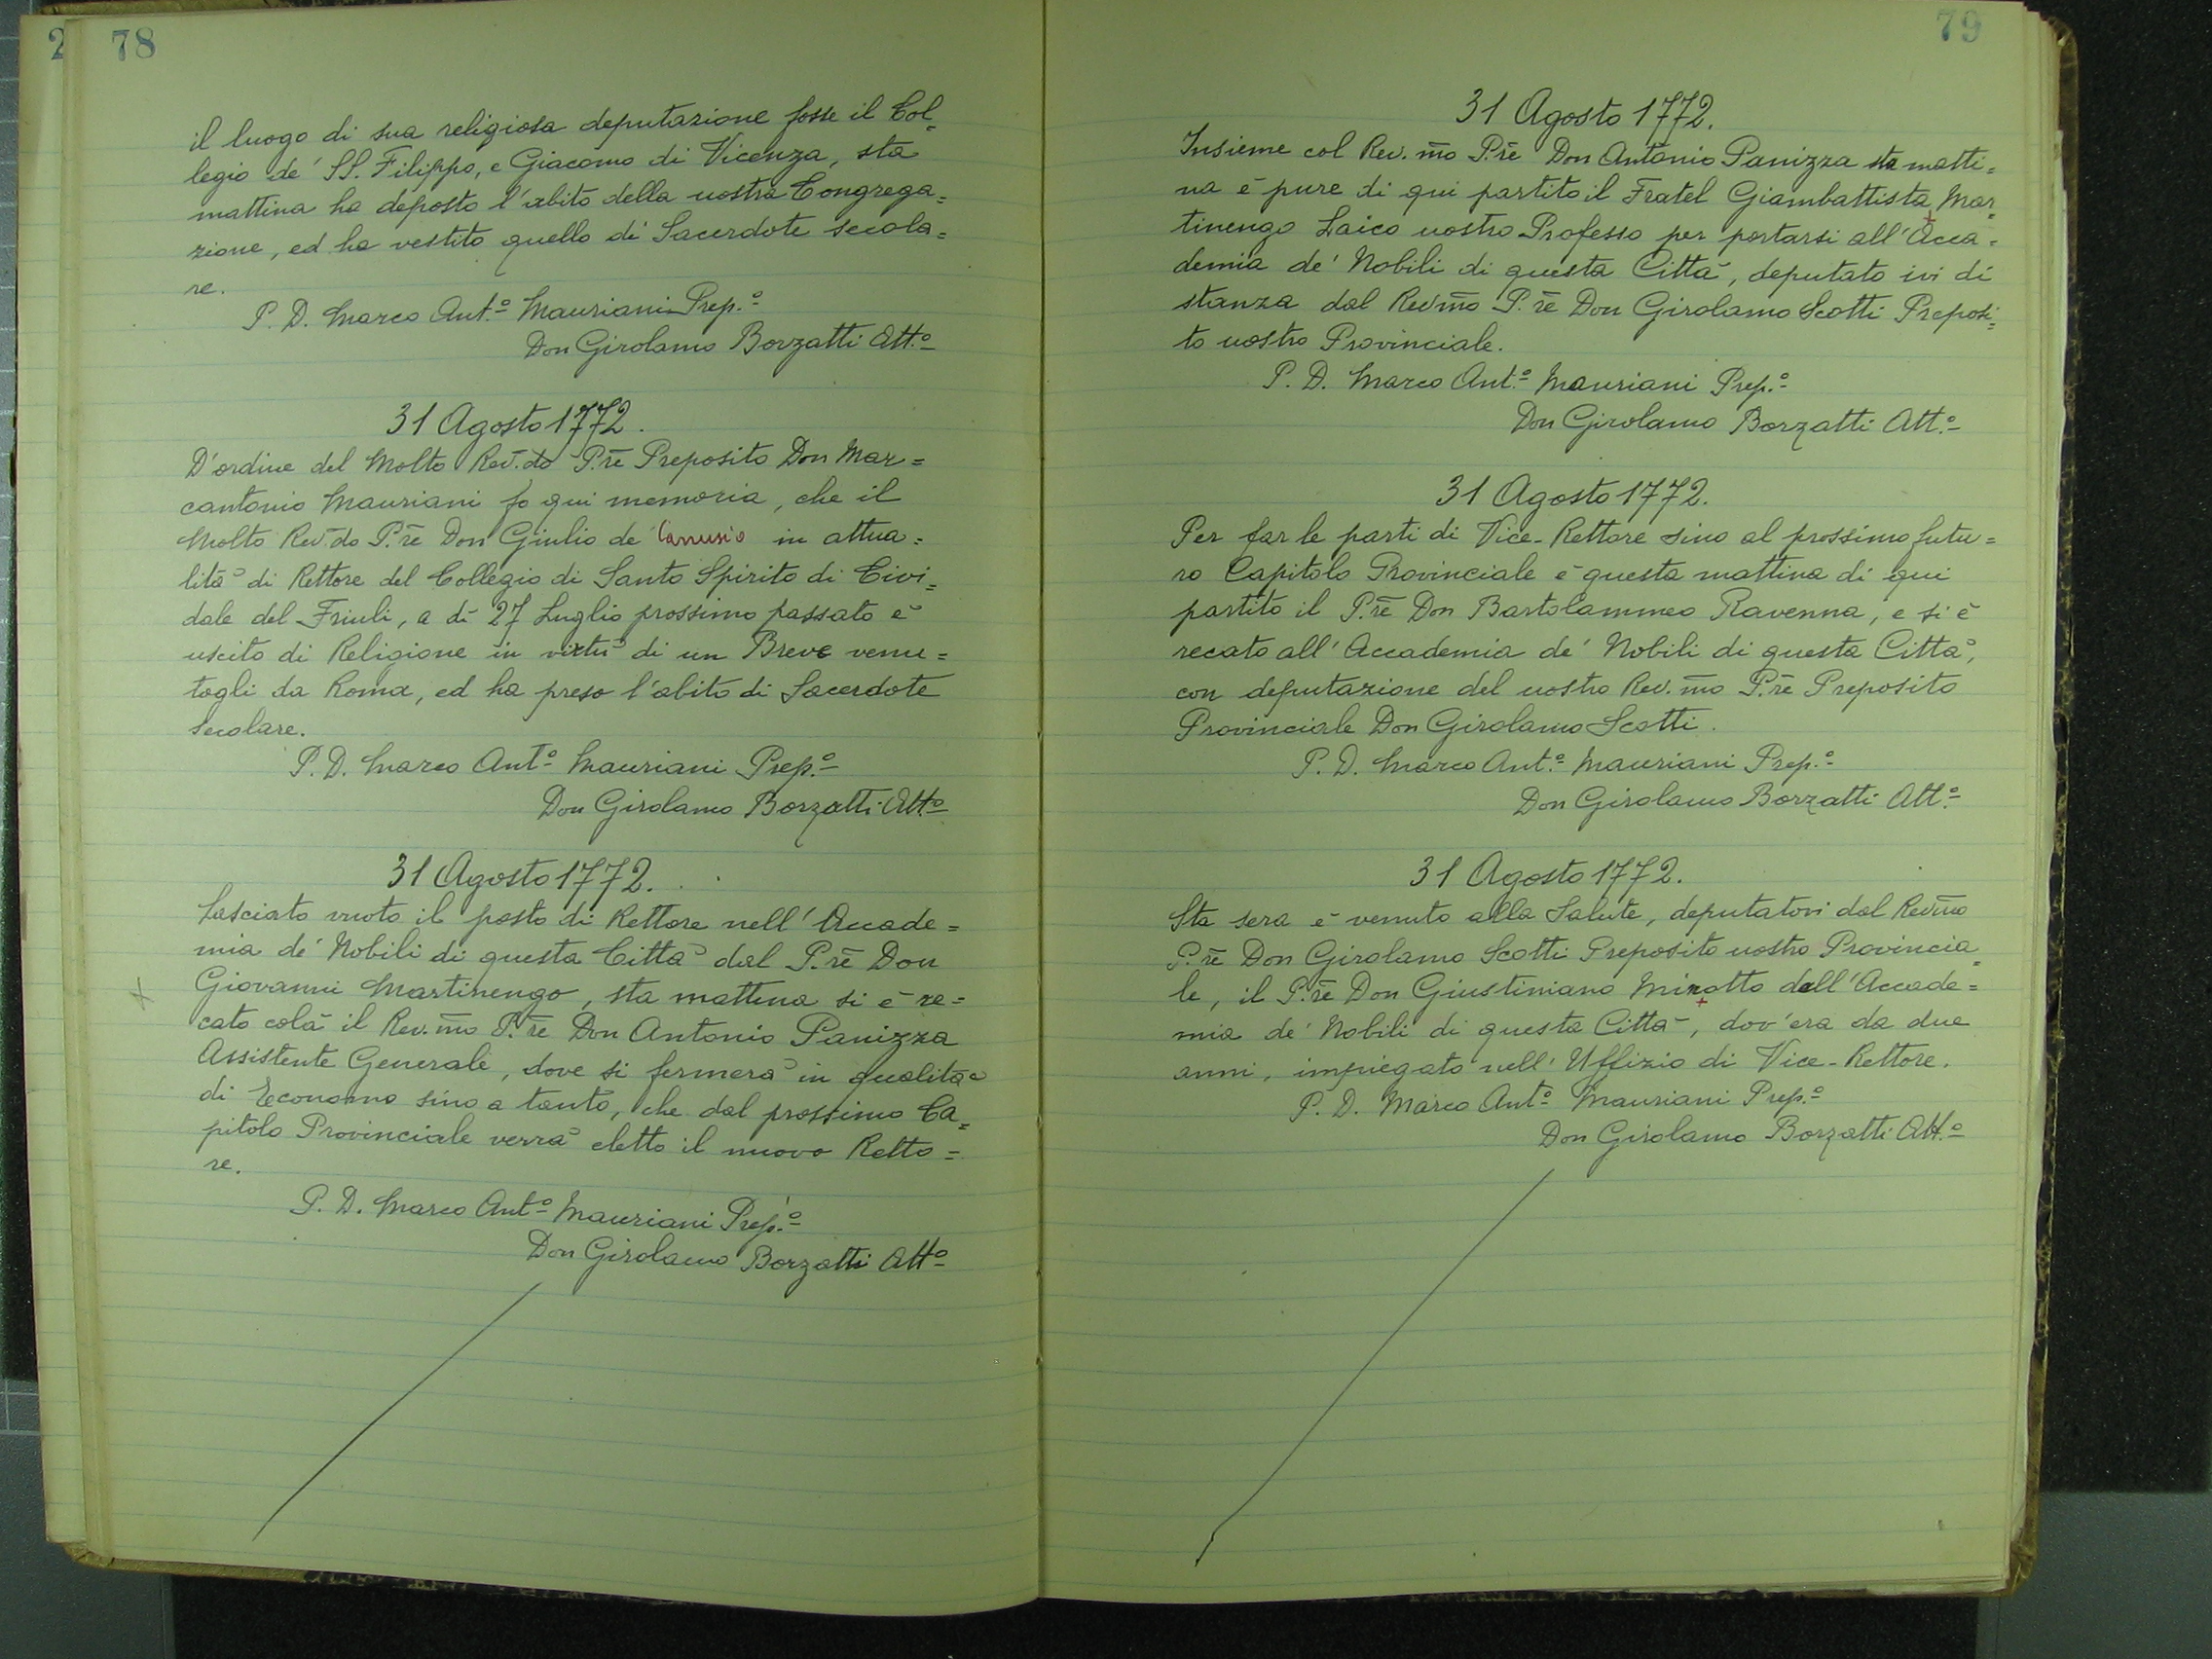 2
78
il luogo di sua religiosa deputazione fosse il Col=
legio de' SS. Filippo, e Giacomo di Vicenza, sta
mattina ha deposto l'abito della nostra Congrega=
zione, ed ha vestito quello di Sacerdote secola=
re.
P. D. Marco Ant.º Mauriani Prep.º
Don Girolamo Borzatti Att.º
31 Agosto 1772.
D'ordine del Molto Rev.do P.rē Preposito Don Mar=
cantonio Mauriani fo qui memoria, che il
Molto Rev.do P.rē Don Giulio de' in attua=
lità di Rettore del Collegio di Santo Spirito di Civi=
dale del Friuli, a dì 27 Luglio prossimo passato è
uscito di Religione in virtù di un Breve venu=
togli da Roma, ed ha preso l'abito di Sacerdote
secolare.
P. D. Marco Ant.º Mauriani Prep.º
Don Girolamo Borzatti Att.º
31 Agosto 1772.
Lasciato vuoto il posto di Rettore nell'Accade=
mia de' Nobili di questa Città dal P.rē Don
Giovanni Martinengo, sta mattina si è re=
cato colà il Rev.m̄o P.rē Don Antonio Panizza
Assistente Generale, dove si fermerà in qualità
di Economo sino a tanto, che dal prossimo Ca=
pitolo Provinciale verrà eletto il nuovo Retto=
re.
P. D. Marco Ant.º Mauriani Prep.º
Don Girolamo Borzatti Att.º
79
31 Agosto 1772.
Insieme col Rev.m̄o P.rē Don Antonio Panizza sta matti=
na è pure di qui partito il Fratel Giambattista Mar=
tinengo Laico nostro Professo per portarsi all'Acca=
demia de' Nobili di questa Città, deputato ivi di
stanza dal Rev.m̄o P.rē Don Girolamo Scotti Preposi=
to nostro Provinciale.
P. D. Marco Ant.º Mauriani Prep.º
Don Girolamo Borzatti Att.º
31 Agosto 1772.
Per far le parti di Vice-Rettore sino al prossimo futu=
ro Capitolo Provinciale è questa mattina di qui
partito il P.rē Don Bartolammeo Ravenna, e si è
recato all'Accademia de' Nobili di questa Città,
con deputazione del nostro Rev.m̄o P.rē Preposito
Provinciale Don Girolamo Scotti.
P. D. Marco Ant.º Mauriani Prep.º
Don Girolamo Borzatti Att.º
31 Agosto 1772.
Sta sera è venuto alla Salute, deputatovi dal Rev.m̄o
P.rē Don Girolamo Scotti Preposito nostro Provincia=
le, il P.rē Don Giustiniano Minotto dall'Accade=
mia de' Nobili di questa Città, dov'era da due
anni, impiegato nell'Uffizio di Vice-Rettore.
P. D. Marco Ant.º Mauriani Prep.º
Don Girolamo Borzatti Att.º